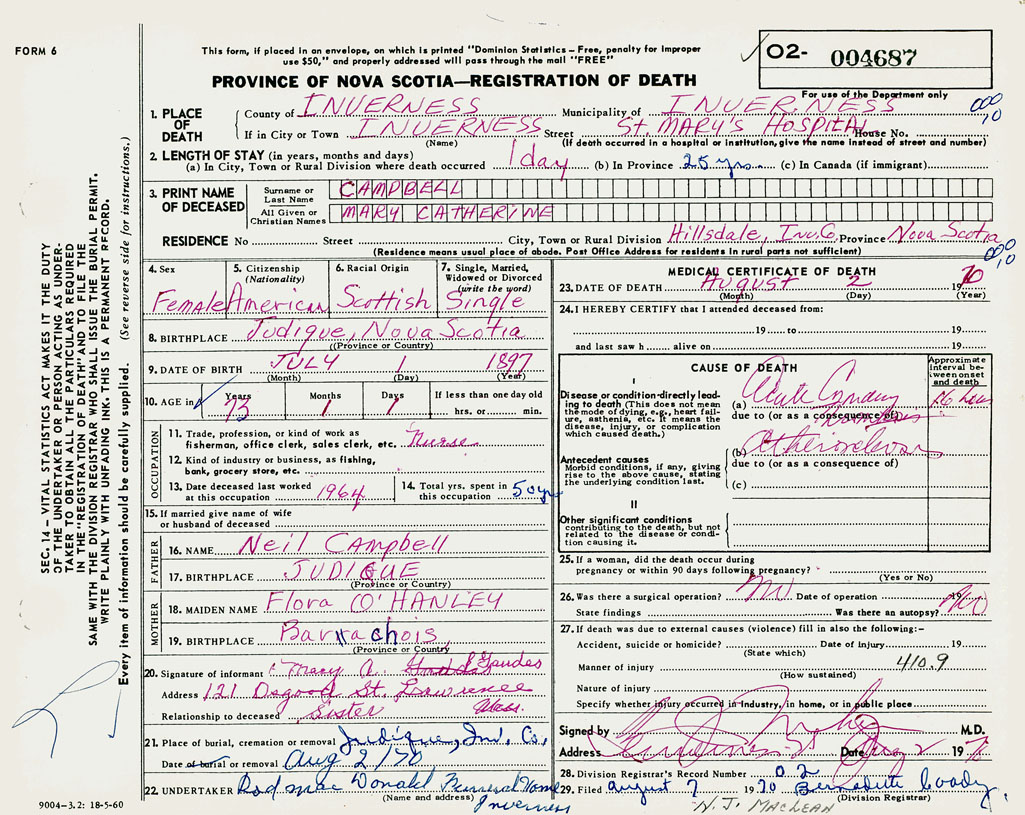 FORM 6
This form, if placed in an envelope, on which is printed "Dominion Statistics – Free, penalty for improper
use $50," and properly addressed will pass through the mail "FREE"
PROVINCE OF NOVA SCOTIA—REGISTRATION OF DEATH
O2- 004687
For use of the Department only
SEC. 14 – VITAL STATISTICS ACT MAKES IT THE DUTY
OF THE UNDERTAKER OR PERSON ACTING AS UNDER-
TAKER TO OBTAIN ALL THE PARTICULARS REQUIRED
IN THE "REGISTRATION OF DEATH" AND TO FILE THE
SAME WITH THE DIVISION REGISTRAR WHO SHALL ISSUE THE BURIAL PERMIT.
WRITE PLAINLY WITH UNFADING INK. THIS IS A PERMANENT RECORD.
Every item of information should be carefully supplied. (See reverse side for instructions.)
1. PLACE OF DEATH
County of INVERNESS Municipality of INVERNESS
000 10
If in City or Town INVERNESS Street St. MARY'S HOSPITAL House No.
(Name) (If death occurred in a hospital or institution, give the name instead of street and number)
2. LENGTH OF STAY (in years, months and days)
(a) In City, Town or Rural Division where death occurred 1 day (b) In Province 25 yrs. (c) In Canada (if immigrant)
3. PRINT NAME OF DECEASED
Surname or Last Name CAMPBELL
All Given or Christian Names MARY CATHERINE
RESIDENCE No Street City, Town or Rural Division Hillsdale, Inv. Co. Province Nova Scotia
(Residence means usual place of abode. Post Office Address for residents in rural parts not sufficient)
000 10
4. Sex Female
5. Citizenship (Nationality) American
6. Racial Origin Scottish
7. Single, Married, Widowed or Divorced (write the word) Single
8. BIRTHPLACE Judique, Nova Scotia
(Province or Country)
9. DATE OF BIRTH JULY 1 1897
(Month) (Day) (Year)
10. AGE in Years 73 Months 1 Days 1 If less than one day old
hrs. or min.
OCCUPATION
11. Trade, profession, or kind of work as
fisherman, office clerk, sales clerk, etc. Nurse
12. Kind of industry or business, as fishing,
bank, grocery store, etc.
13. Date deceased last worked at this occupation 1964
14. Total yrs. spent in this occupation 50 yrs
15. If married give name of wife
or husband of deceased
FATHER
16. NAME Neil Campbell
17. BIRTHPLACE JUDIQUE
(Province or Country)
MOTHER
18. MAIDEN NAME Flora O'HANLEY
19. BIRTHPLACE Barrachois
(Province or Country)
20. Signature of informant Mary A. Gaudes
Address 121 Osgood St. Lawrence
Mass.
Relationship to deceased Sister
21. Place of burial, cremation or removal Judique, Inv. Co.,
Date of burial or removal Aug 2/70
22. UNDERTAKER Rod Mac Donald Funeral Home
(Name and address) Inverness
9004–3.2: 18-5-60
MEDICAL CERTIFICATE OF DEATH
23. DATE OF DEATH August 2 1970
(Month) (Day) (Year)
24. I HEREBY CERTIFY that I attended deceased from:
19 to 19
and last saw h alive on 19
CAUSE OF DEATH
Approximate interval between onset and death
I
Disease or condition directly lead-
ing to death (This does not mean
the mode of dying, e.g., heart fail-
ure, asthenia, etc. It means the
disease, injury, or complication
which caused death.)
(a) Acute Coronary
due to (or as a consequence of)
Antecedent causes
Morbid conditions, if any, giving
rise to the above cause, stating
the underlying condition last.
(b)
due to (or as a consequence of)
(c)
II
Other significant conditions
contributing to the death, but not
related to the disease or condi-
tion causing it.
25. If a woman, did the death occur during
pregnancy or within 90 days following pregnancy?
(Yes or No)
26. Was there a surgical operation? Date of operation 19
State findings Was there an autopsy? No
27. If death was due to external causes (violence) fill in also the following:–
Accident, suicide or homicide? Date of injury 19
(State which)
410.9
Manner of injury
(How sustained)
Nature of injury
Specify whether injury occurred in industry, in home, or in public place
Signed by M.D.
Address Inverness Date Aug 2 1970
28. Division Registrar's Record Number 02
29. Filed August 7 1970 Bernadette Coady
(Division Registrar)
N. J. MACLEAN